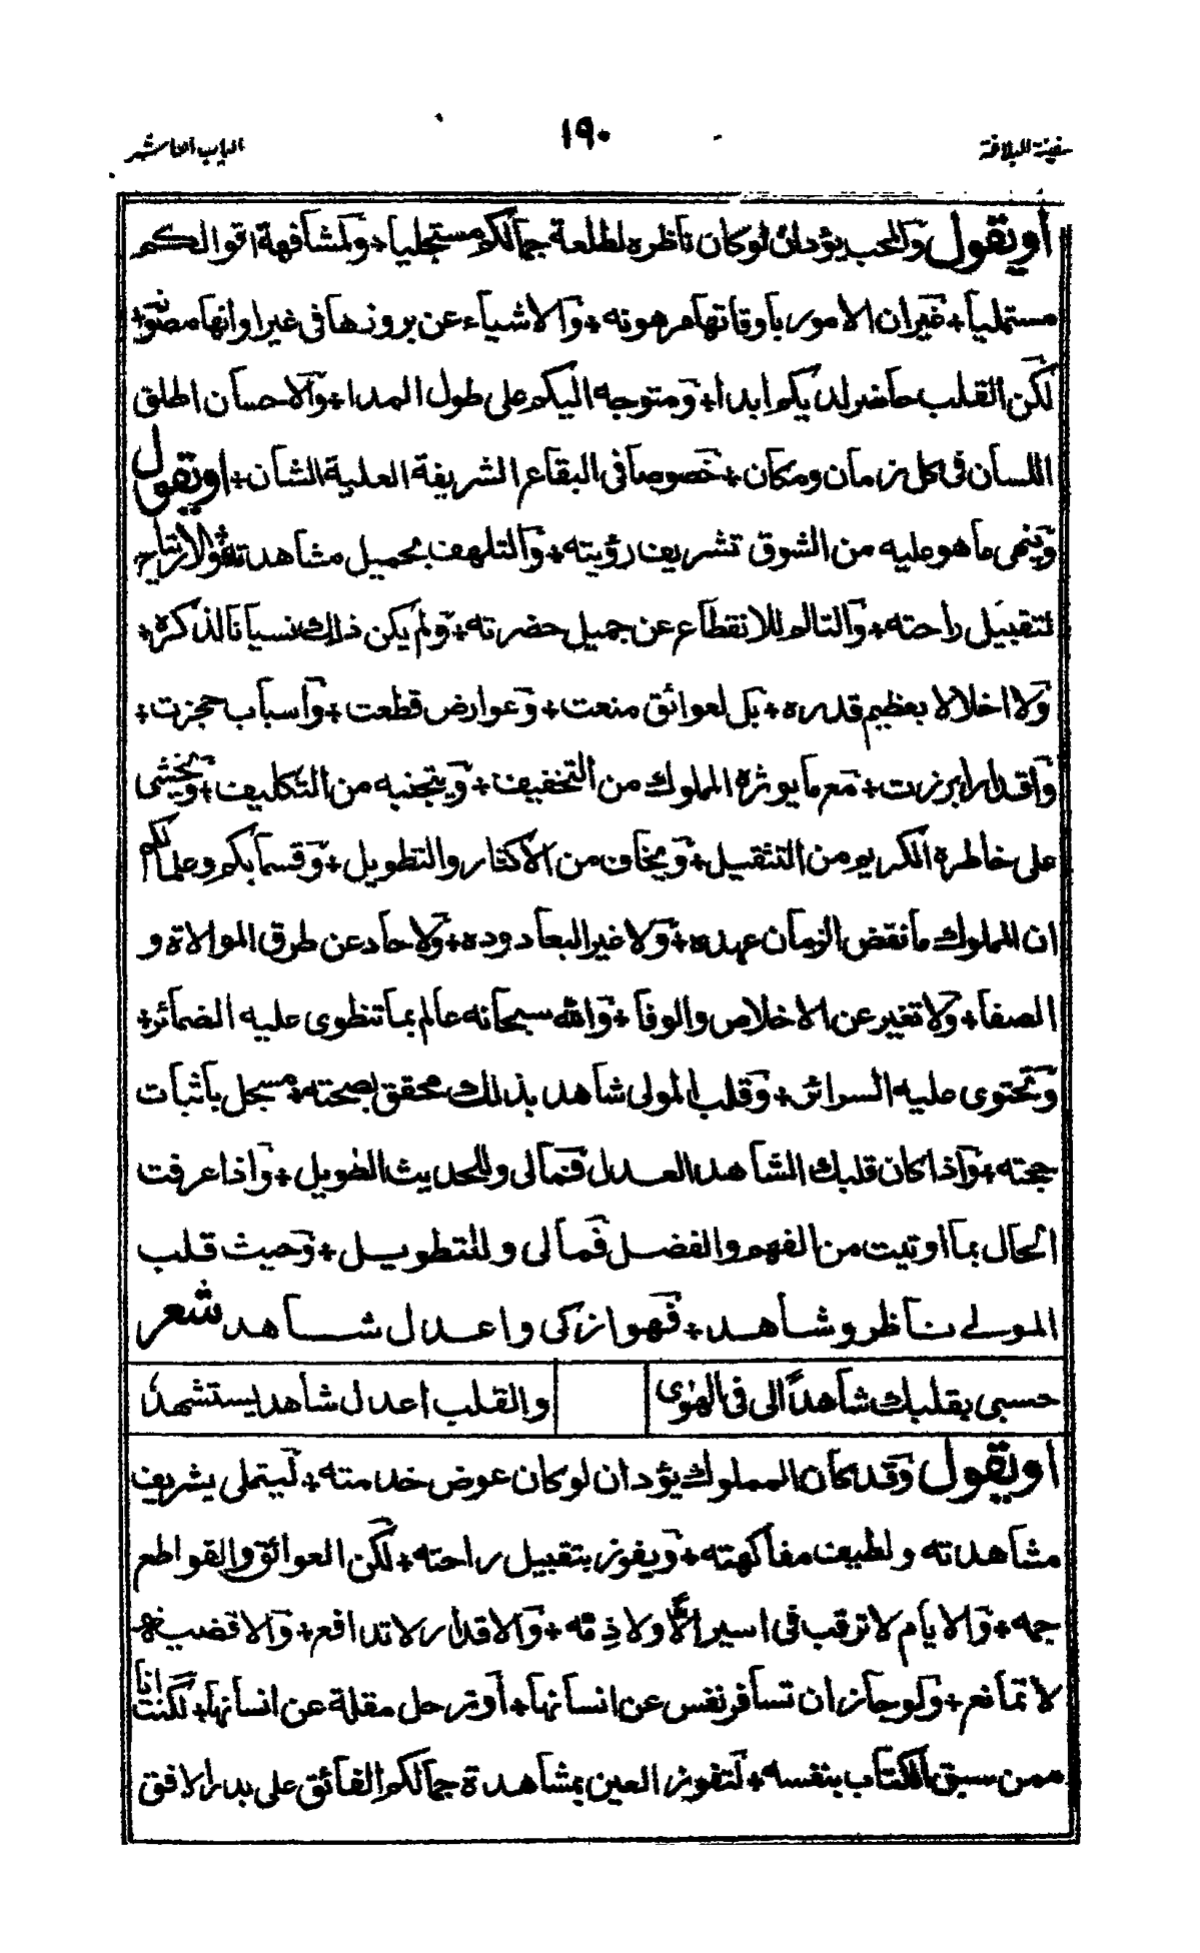 سفينة البلاغة ١٩٠ الباب العاشر
أو تقول والمحب يود ان لو كان ناظره لطلعة جمالكم مستجليا + ولمشافهة اقوالكم
مستمليا + غير ان الامور باوقاتها مرهونه + والاشياء عن بروزها في غير اوانها مصونة +
لكن القلب حاضر لديكم ابدا + ومتوجه اليكم على طول المدا + والاحسان اطلق
اللسان في كل زمان ومكان + خصوصا في البقاع الشريفة العلية الشان + او تقول
وينهى ما هو عليه من الشوق تشريف رؤيته + والتلهف بجميل مشاهدته + والارتياح
لتقبيل راحته + والتالم للانقطاع عن جميل حضرته + ولم يكن ذلك نسيانا لذكره +
ولا اخلالا بعظيم قدره + بل لعوائق منعت + وعوارض قطعت + واسباب حجزت +
واقدار ابرزت + مع ما يوثره المملوك من التخفيف + ويتجنبه من التكليف + ويخشى
على خاطره الكريم من التثقيل + ويخاف من الاكثار والتطويل + وقسما بكم وعلما لكم
ان المملوك ما نقض الزمان عهده + ولا غير البعاد وده + ولا حاد عن طرق الموالاة و
الصفا + ولا تغير عن الاخلاص والوفا + والله سبحانه عالم بما تنطوى عليه الضمائر +
وتحتوى عليه السرائر + وقلب المولى شاهد بذلك محقق لصحته + مسجل باثبات
حجته + واذا كان قلبك الشاهد العدل فمالى وللحديث الطويل + واذا عرفت
الحال بما اوتيت من الفهم والفضل فمالى وللتطويل + وحيث قلب
المولى ناظر وشاهد + فهو ازكى واعدل شاهد شعر
حسبى بقلبك شاهدًا لى فى الهوى والقلب اعدل شاهد يستشهد
او تقول وقد كان المملوك يود ان لو كان عوض خدمته + ليتملى بشريف
مشاهدته ولطيف مفاكهته + ويفوز بتقبيل راحته + لكن العوائق والقواطع
جمه + والايام لا ترقب فى اسير الا ولا ذمه + والاقدار لا تدافع + والاقضيه
لا تمانع + ولو جاز ان تسافر نفس عن انسانها + او ترحل مقلة عن انسانها + لكنت انا
ممن سبق الكتاب بنفسه + لتفوز العين بمشاهدة جمالكم الفائق على بدر الافق